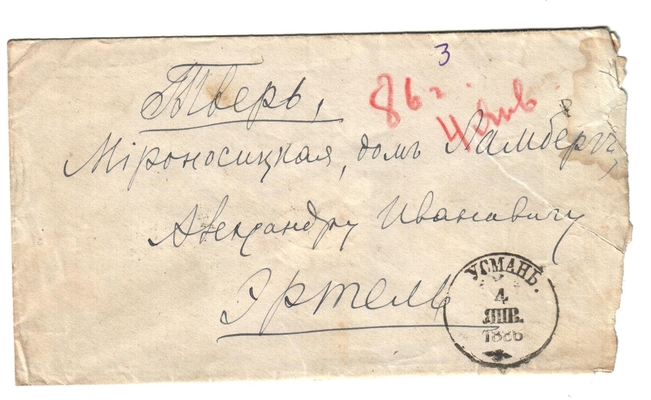 3
Тверь,
86 г.
4 янв.
Мiроносицкая, домъ Ламбертъ,
Александру Ивановичу
Эртель
УСМАНЬ.
4
ЯНВ.
1886